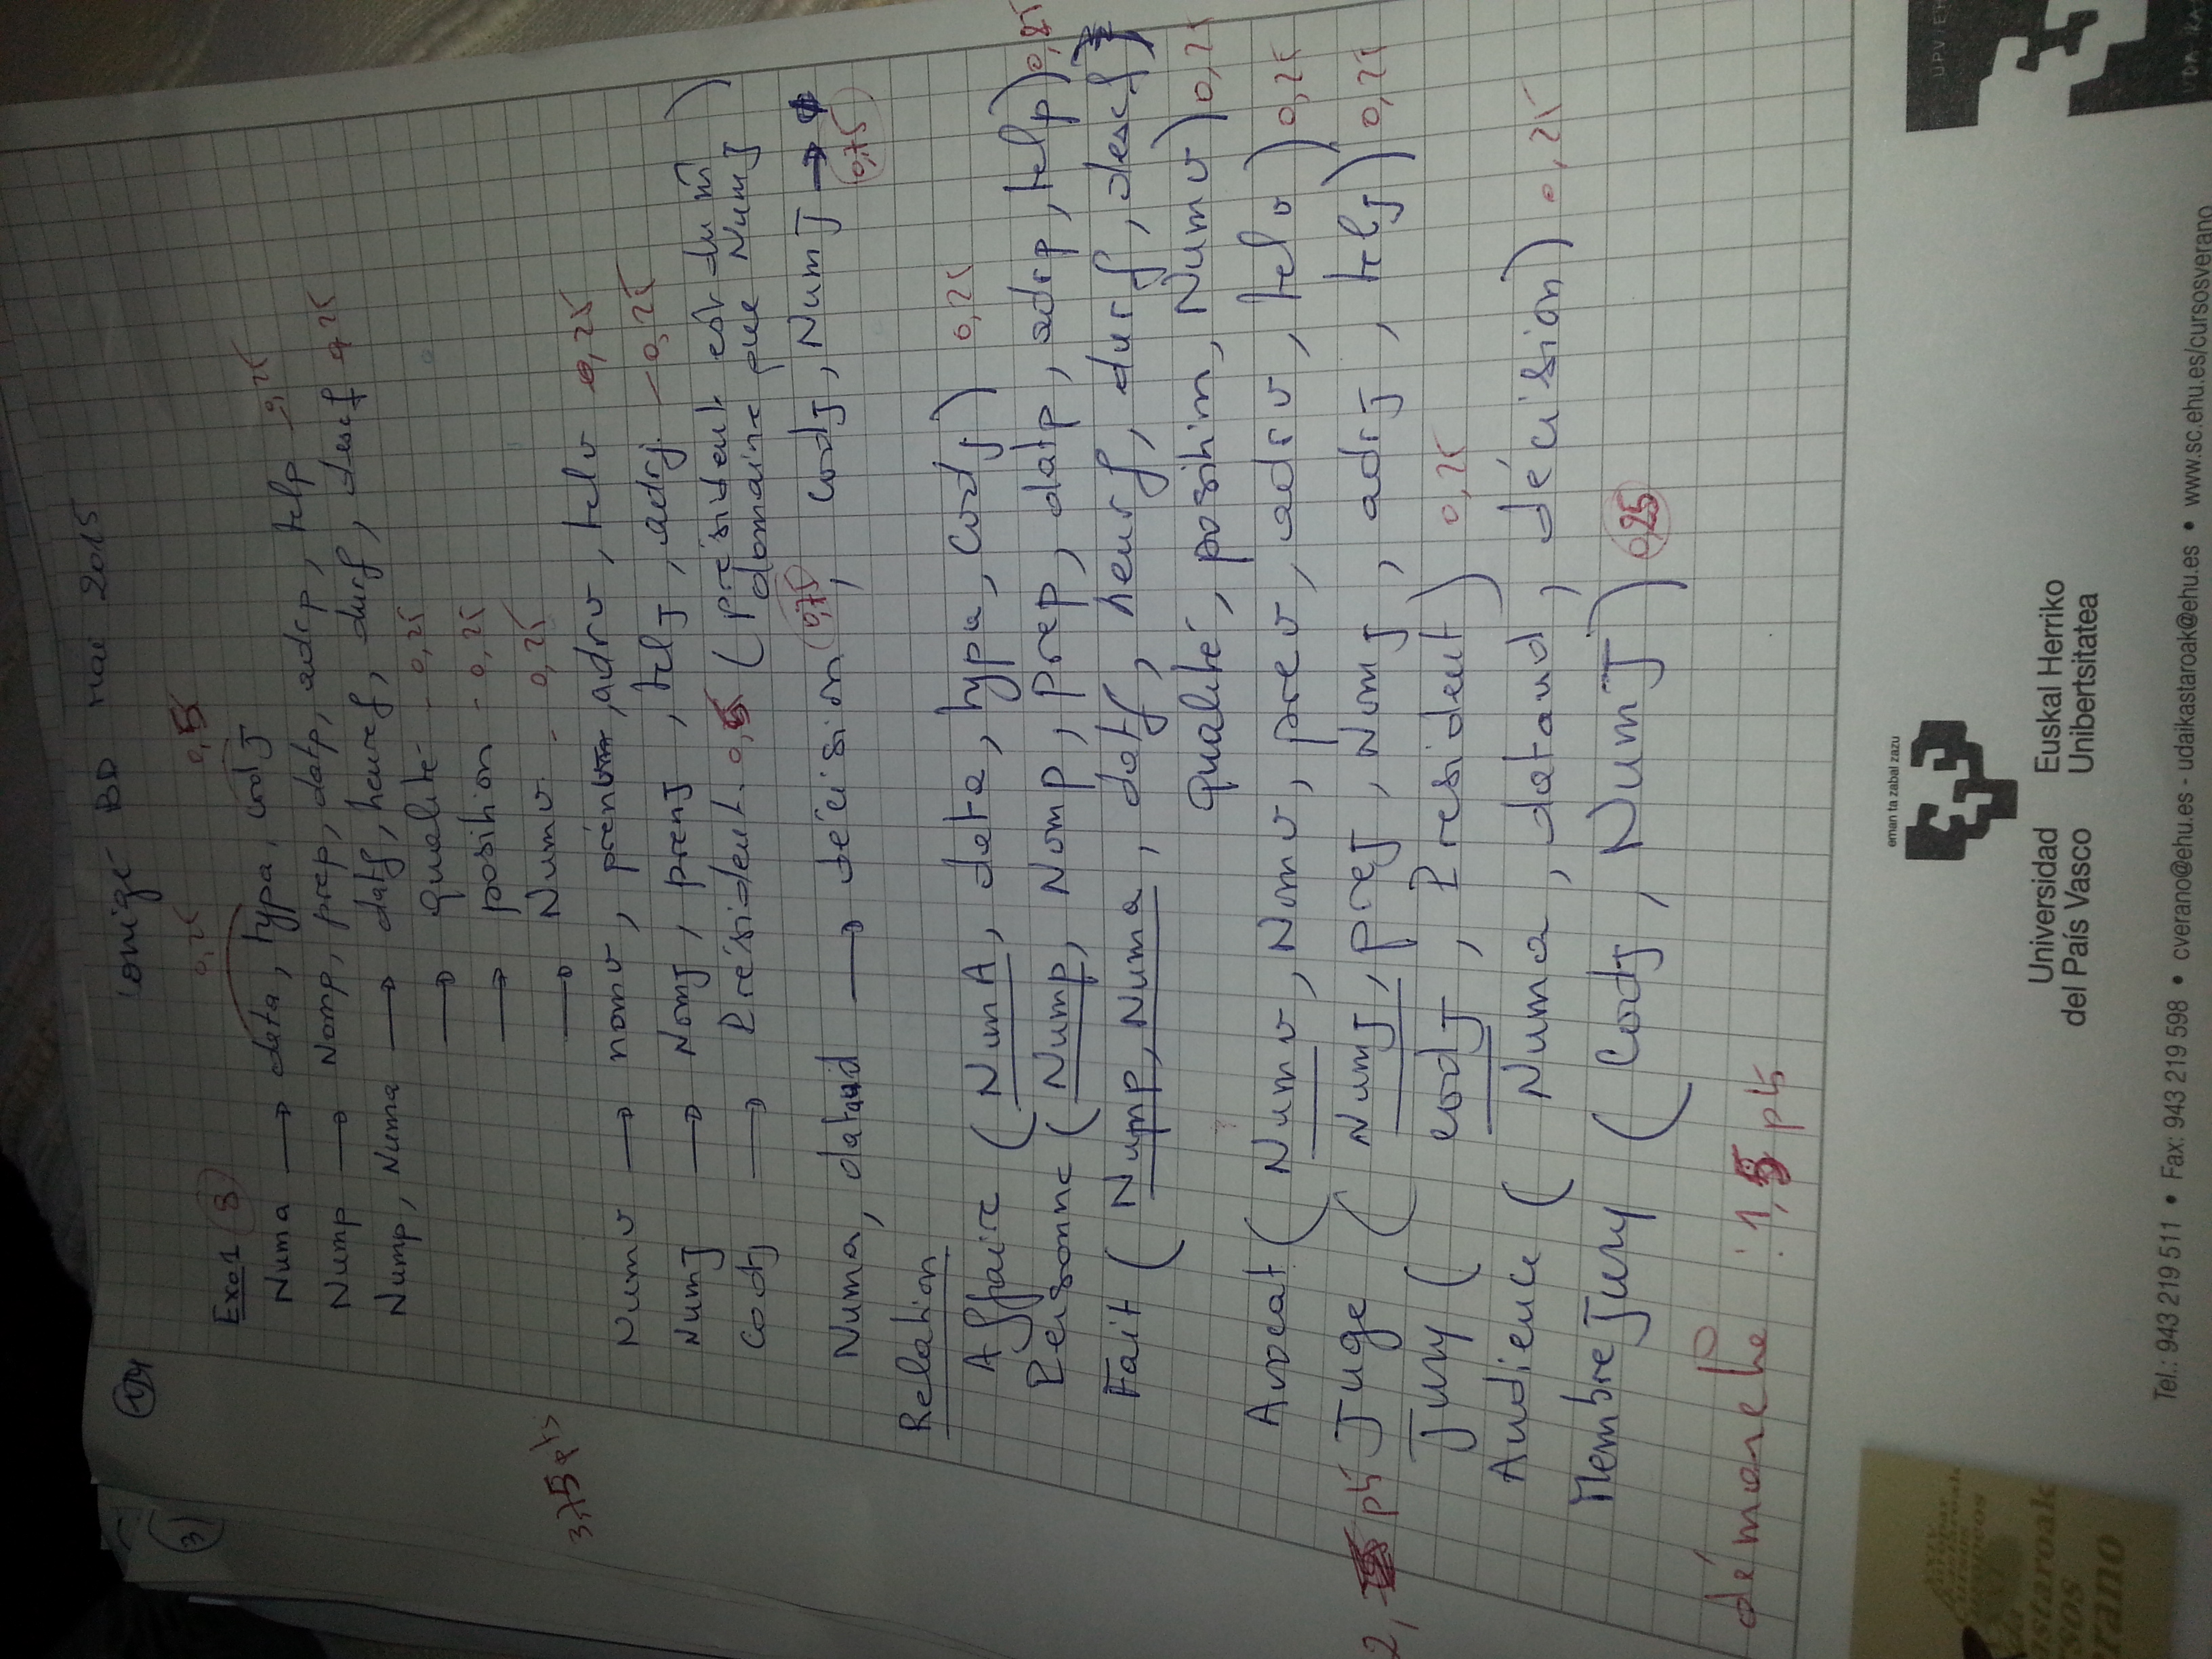 Corrigé BD Mai 2015
3)
0,25 0,5
Exo1 8
Numa → data, typa, codj
Nump → Nomp, prep, datp, adrp, telp - 0,25
Nump, Numa → datf, heuref, durf, descf 0,25
→ qualité - 0,25
→ position - 0,25
→ Numv - 0,25
3,75 pts
Numv → nomv, prénv, adrv, telv 0,25
NumJ → NomJ, prenJ, telJ, adrj. - 0,25
CodJ → Président. 0,5 (président est du m̂
domaine que NumJ)
Numa, dataud → décision 0,75, CodJ, NumJ →
0,75
Relation
Affaire (NumA, data, typa, CodJ) 0,25
Personne (Nump, Nomp, prep, datp, adrp, telp) 0,25
Fait (Nump, Numa, datf, heurf, durf, descf,
qualité, position, Numv) 0,25
?
Avocat (Numv, Nomv, prev, adrv, telv) 0,25
2, pts Juge (NumJ, preJ, NomJ, adrJ, telJ) 0,25
Jury (codJ, President) 0,25
Audience (Numa, dataud, décision) 0,25
Membre Jury (CodJ, NumJ) 0,25
démarche : 1,5 pts
eman ta zabal zazu
Universidad del País Vasco
Euskal Herriko Unibertsitatea
UPV/EH
Tel.: 943 219 511 • Fax: 943 219 598 • cverano@ehu.es - udaikastaroak@ehu.es • www.sc.ehu.es/cursosverano